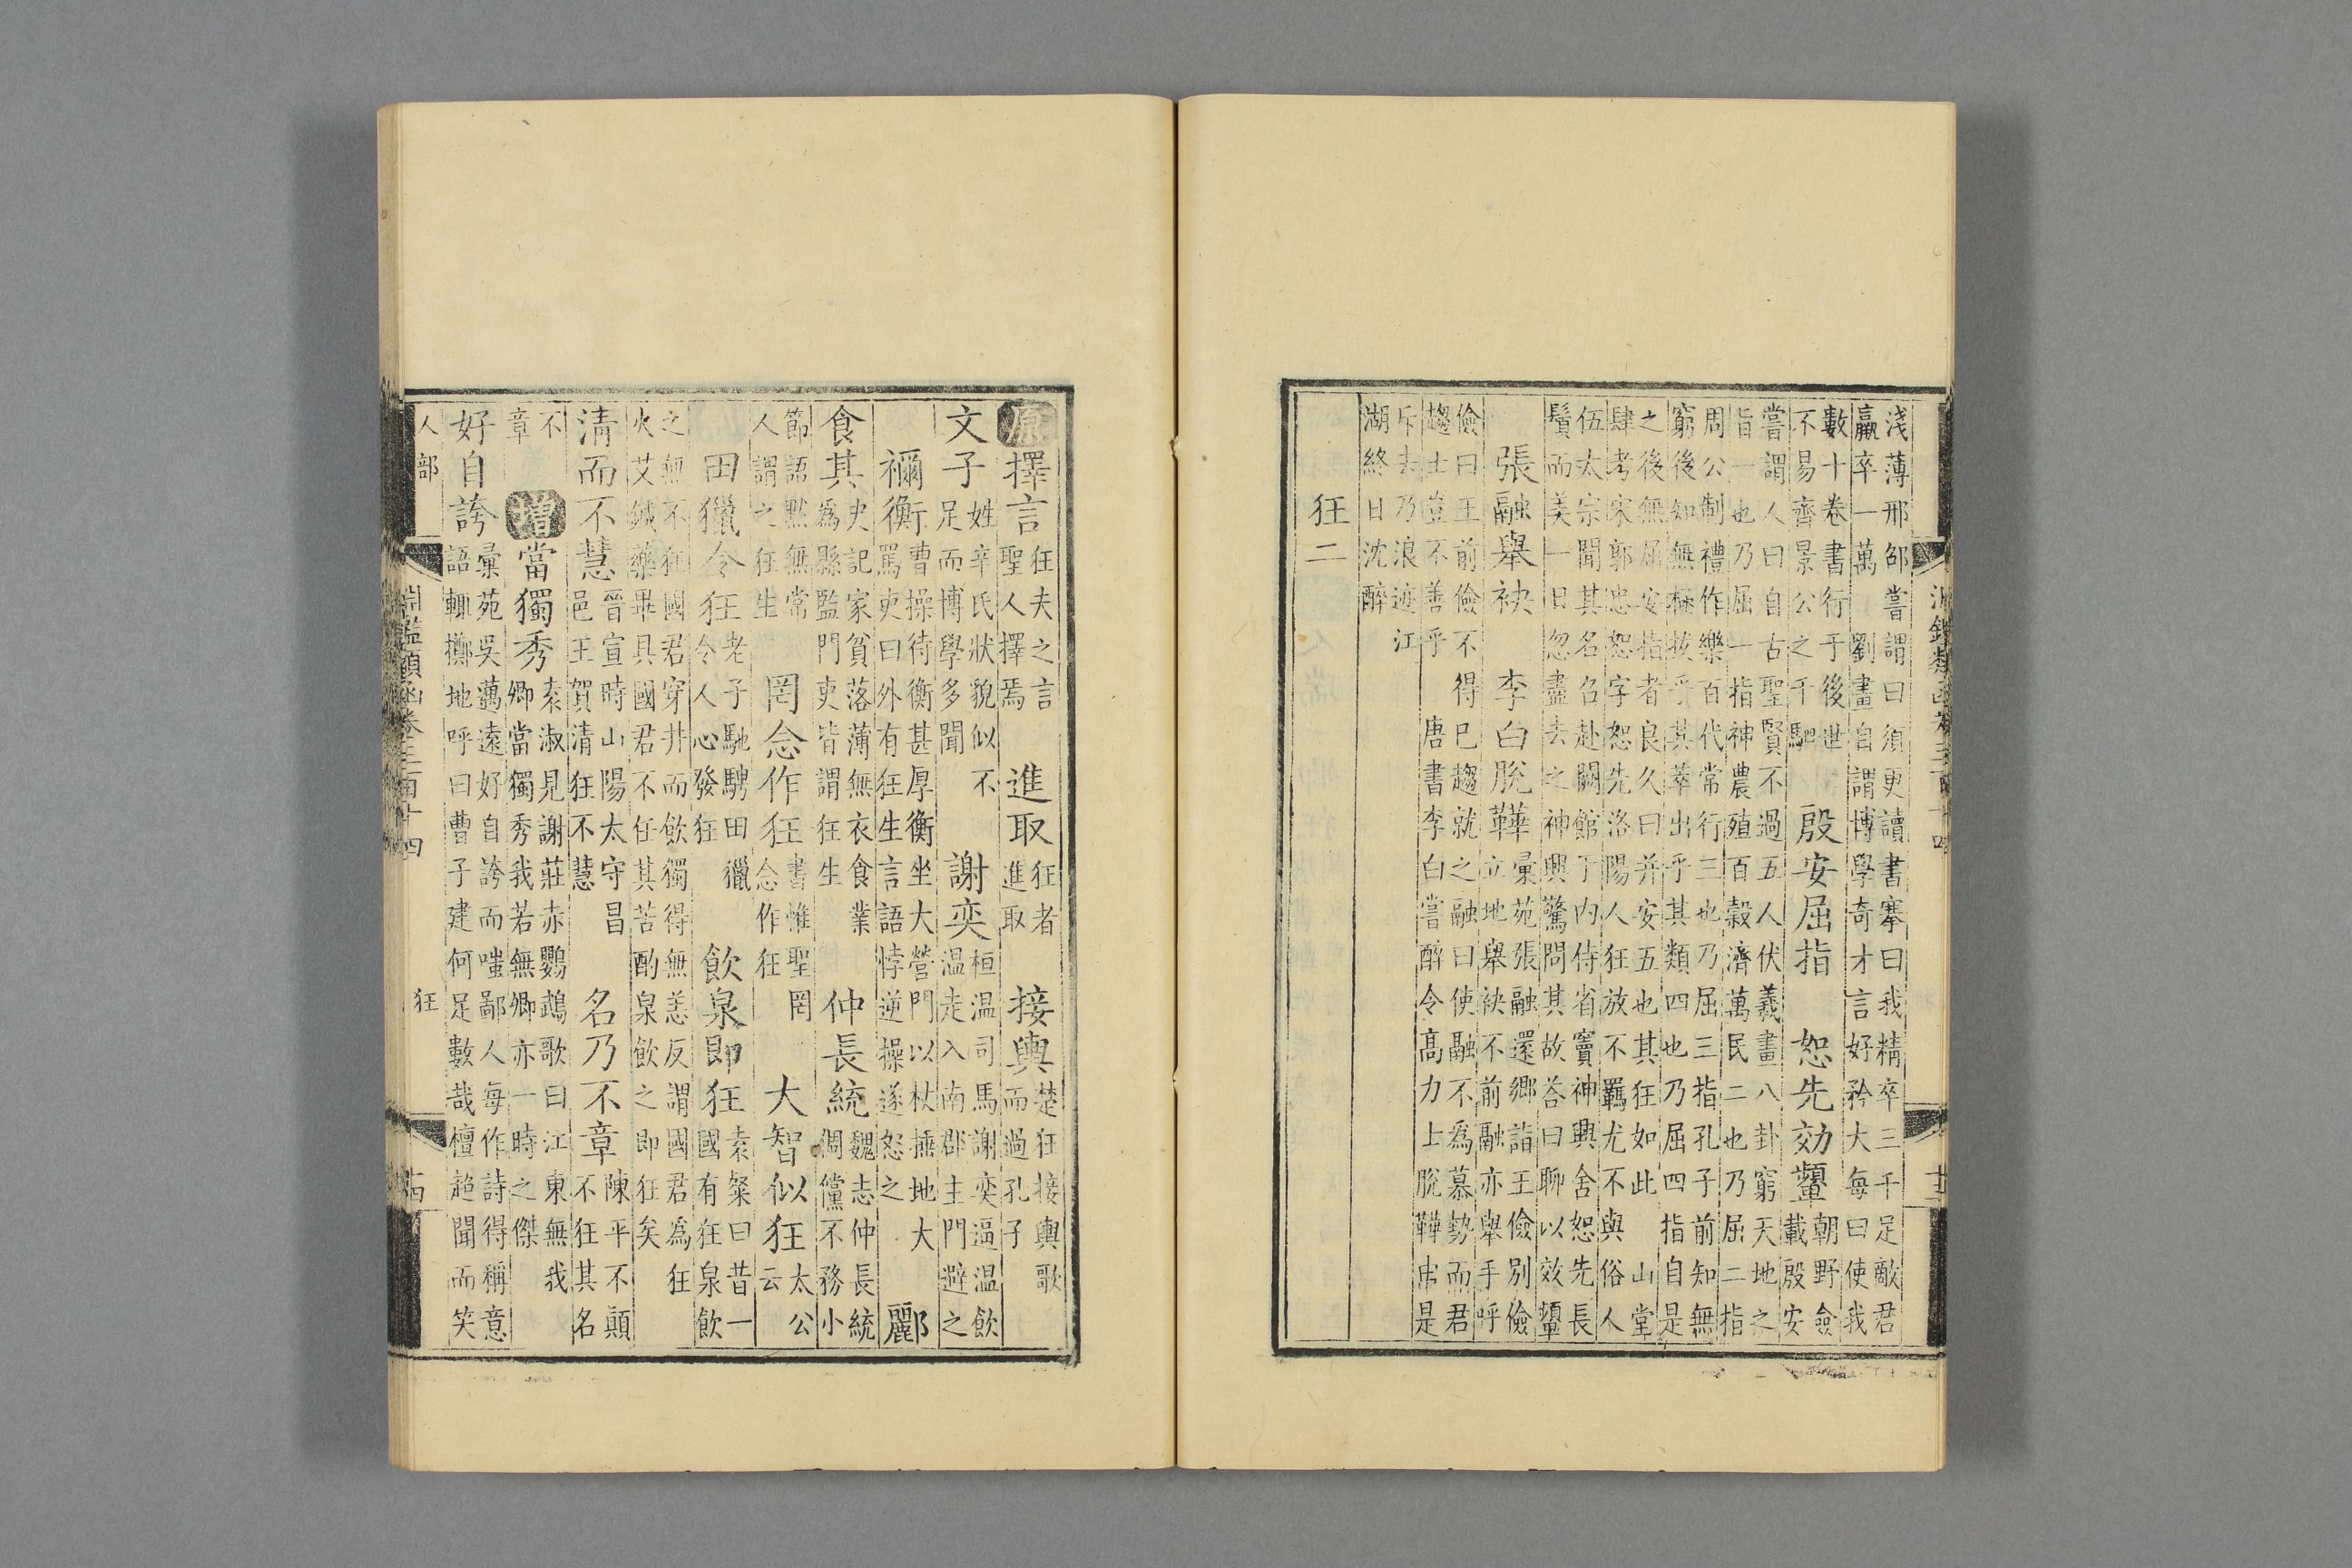 淺薄邢邵嘗謂曰須更讀書搴曰我精卒三千足敵君
羸卒一萬　劉晝自謂博學奇才言好矜大每曰使我
數十卷書行于後世
不易齊景公之千駟
殷安屈指　恕先効顰
朝野僉
載殷安
嘗謂人曰自古聖賢不過五人伏羲畫八卦窮天地之
指一也乃屈一指神農殖百穀濟萬民二也乃屈二指
周公制禮作樂百代常行三也乃屈三指孔子前知無
窮後知無極拔乎其萃出乎其類四也乃屈四指自是
之後無屈安指者良久曰并安五也其狂如此　山堂
肆考宋郭忠恕字恕先洛陽人狂放不羈尤不與俗人
伍太宗聞其名召赴闕館于內侍省竇神興舍恕先長
鬢而美一日忽盡去之神興驚問其故荅曰聊以效顰
張融舉袂　李白脫鞾
彚苑張融還鄉詣王儉別儉
立地舉袂不前融亦舉手呼
儉曰王前儉不得已趨就之融曰使融不爲慕勢而君
趨士豈不善乎　唐書李白嘗醉令高力上脫鞾由是
斥去乃浪迹江
湖終日沈醉
狂二
原擇言
狂夫之言
聖人擇焉
進取
狂者
進取
接輿
楚狂接輿歌
而過孔子
文子
姓辛氏狀貌似不
足而博學多聞
謝奕
桓温司馬謝奕逼温飲
温走入南郡主門避之
禰衡
曹操待衡甚厚衡坐大營門以杖捶地大
罵吏曰外有狂生言語悖逆操遂恕之
酈
食其
史記家貧落薄無衣食業
爲縣監門吏皆謂狂生
仲長統
魏志仲長統
倜儻不務小
節語默無常
人謂之狂生
罔念作狂
書惟聖罔
念作狂
大智似狂
太公
云
田獵令狂
老子馳騁田獵
令人心發狂
飲泉即狂
袁粲曰昔一
國有狂泉飲
之無不狂國君穿井而飲獨得無恙反謂國君爲狂
火艾鍼藥畢具國君不任其苦酌泉飲之即狂矣
清而不慧
晉宣時山陽太守昌
邑王賀清狂不慧
名乃不章
陳平不顛
不狂其名
不
章
增當獨秀
袁淑見謝莊赤鸚鵡歌曰江東無我
卿當獨秀我若無卿亦一時之傑
好自誇
彚苑吳邁遠好自誇而嗤鄙人每作詩得稱意
語輒擲地呼曰曹子建何足數哉檀超聞而笑
人部　狂
淵鑑類函卷三百十四